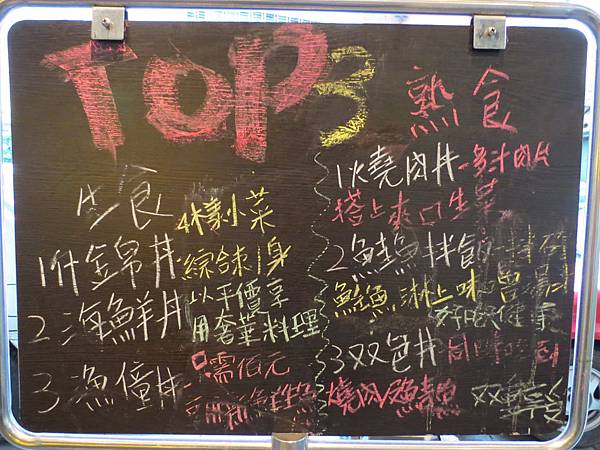 TOP3
生食
4樣小菜
1什錦丼 綜合刺身
2海鮮丼 以平價享
用奢華料理
3漁僮丼 只需佰元
熟食
1火燒肉丼 多汁肉片
搭上爽口生菜
2鮭魚拌飯
鮭魚淋上味噌湯
好吃健康
3双色丼 同時吃到
燒肉
双饗宴